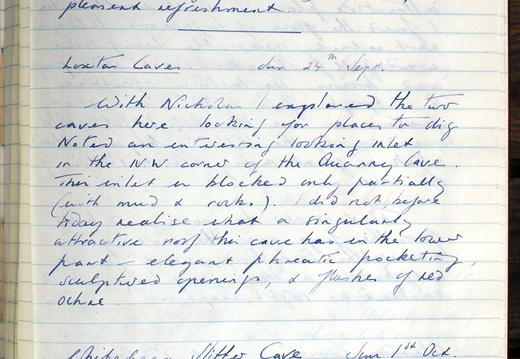 pleasant refreshment.
Loxton Caves. Sun 24th Sept.
With Nicholas I explored the two
caves here looking for places to dig
Noted an interesting looking inlet
in the N.W. corner of the Quarry Cave.
This inlet is blocked only partially
(with mud & rocks.). I did not before
today realise what a singularly
attractive roof this cave has in the lower
part - elegant phreatic pocketing,
sculptured openings, & flushes of red
ochre.
Slitter Cave Sun 1st Oct.